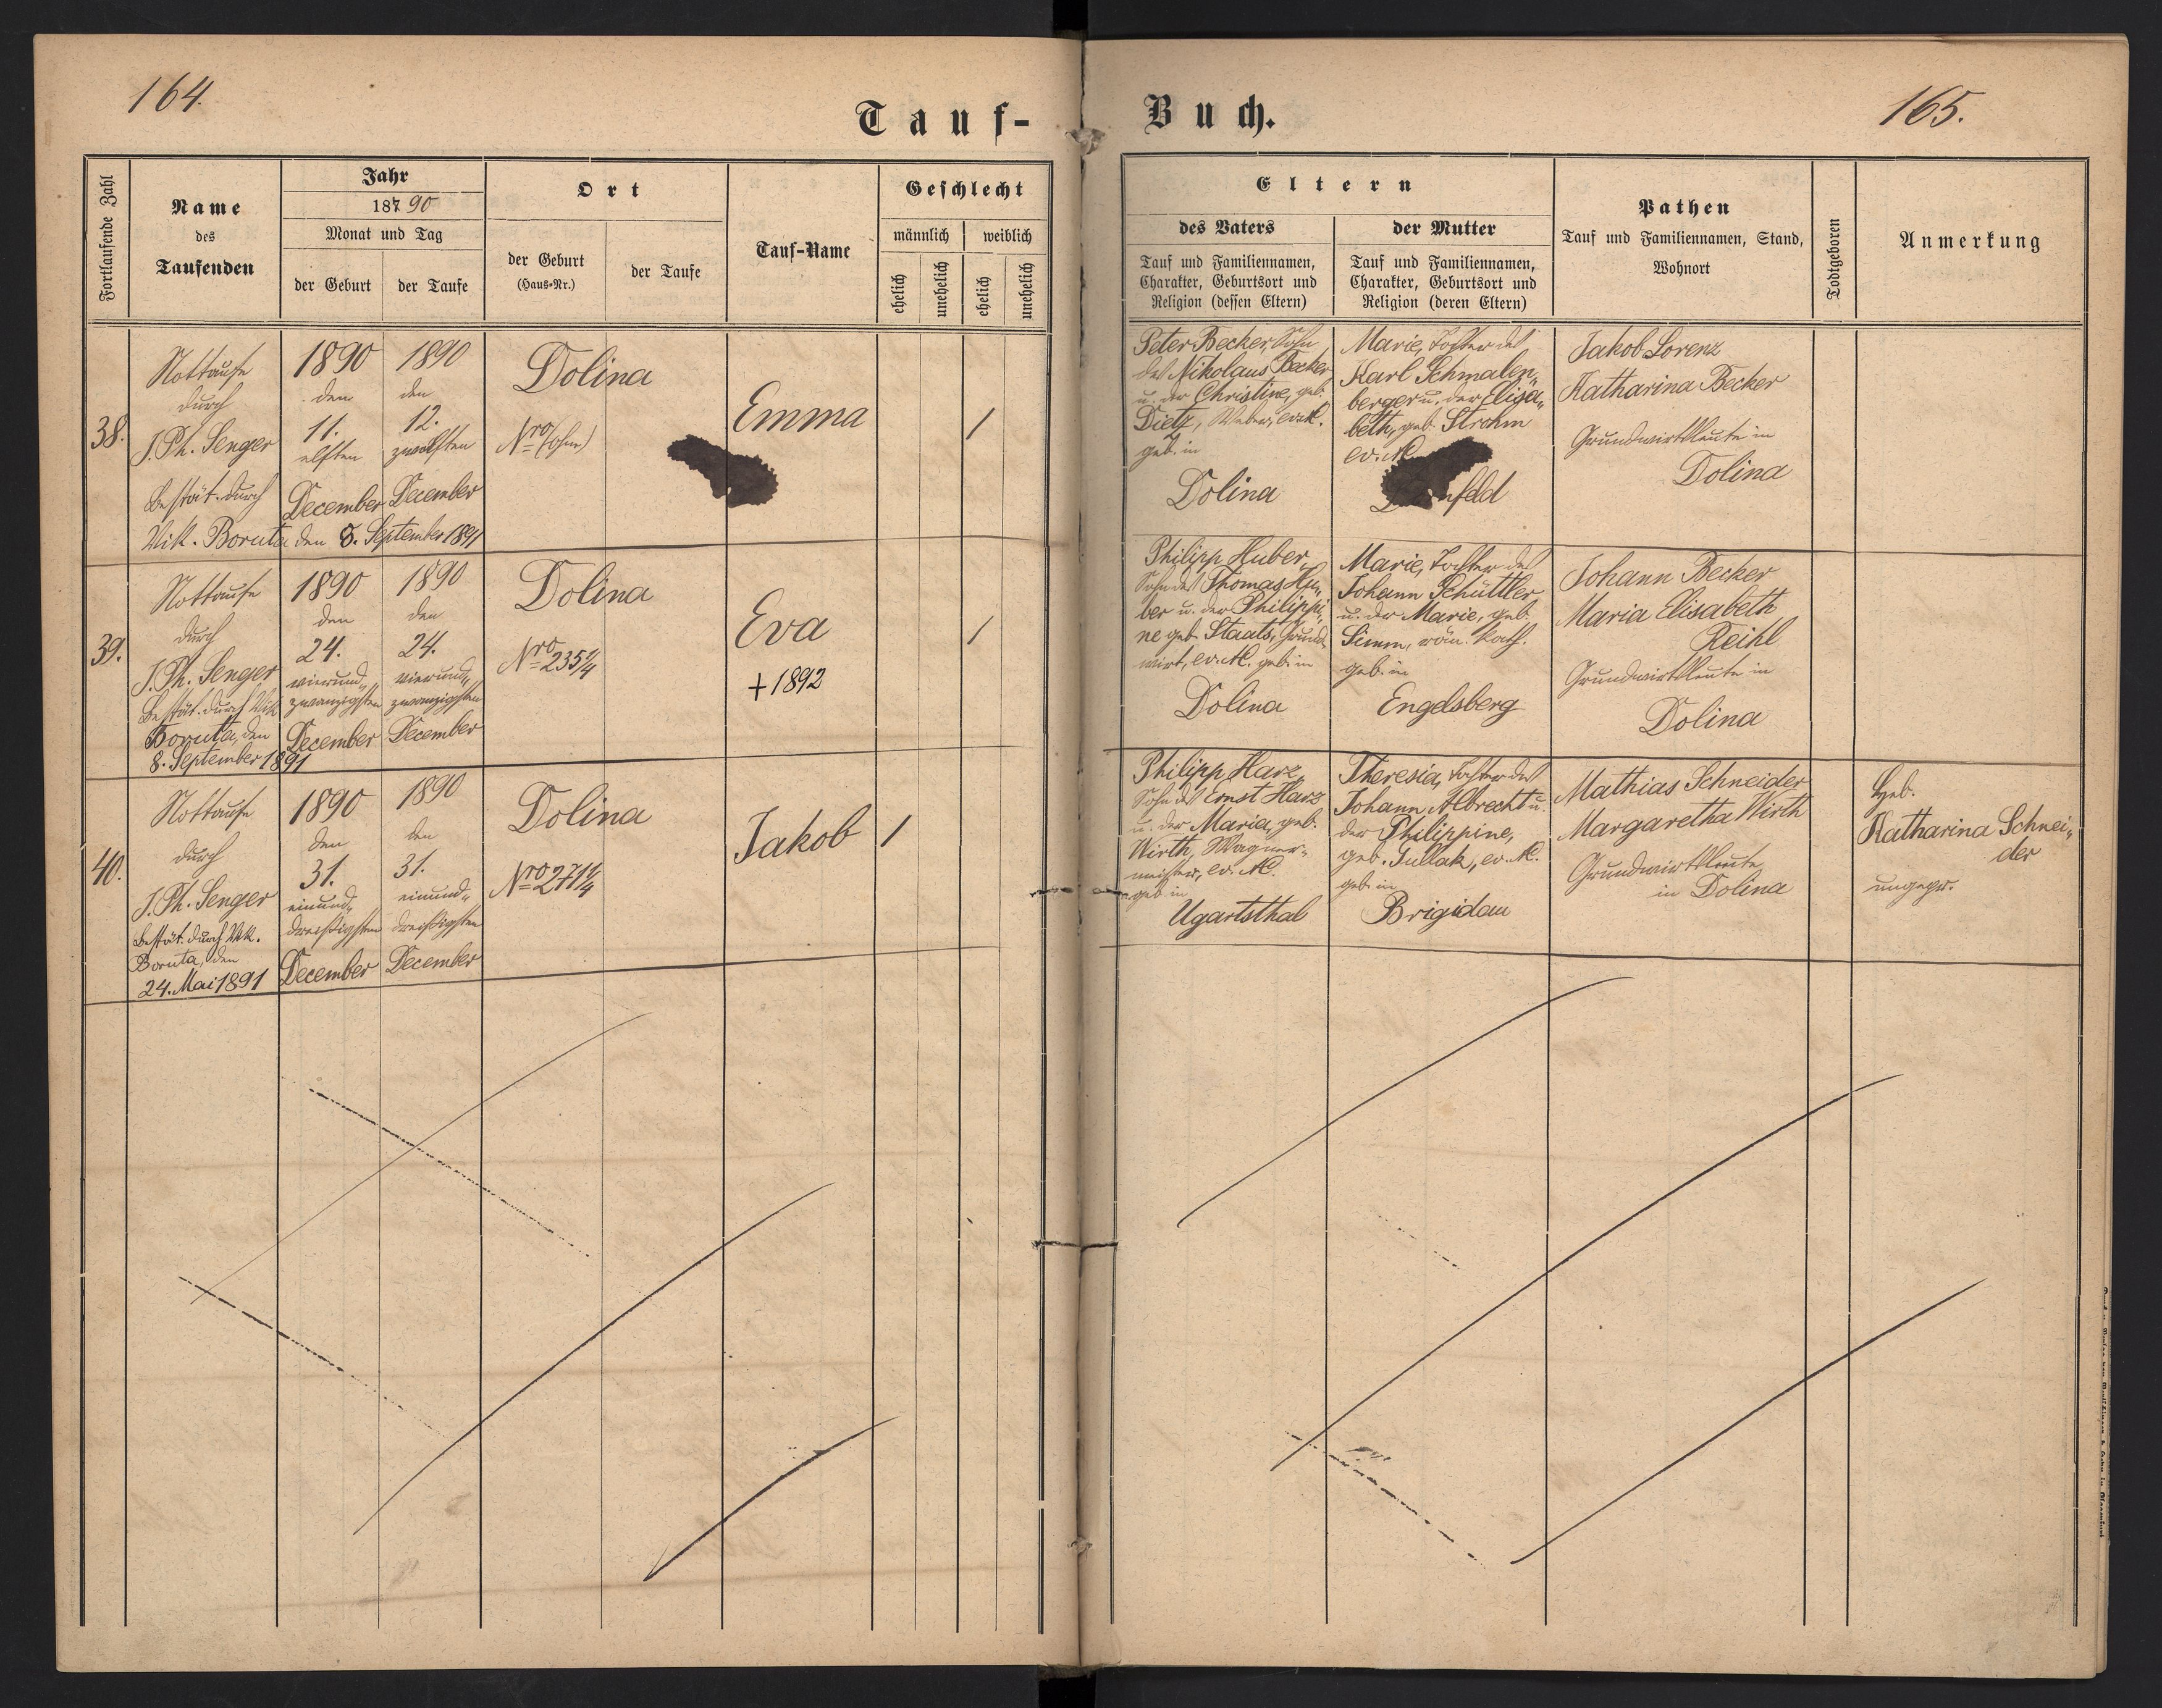 164.
Tauf-
Fortlaufende Zahl
Name
des
Taufenden
Jahr
187 90
Monat und Tag
der Geburt
der Taufe
Ort
der Geburt
(Haus-Nr.)
der Taufe
Tauf-Name
Geschlecht
männlich
weiblich
ehelich
unehelich
ehelich
unehelich
38.
Nottaufe
durch
J. Ph. Senger
Bestät. durch
Vik. Boruta den 8. September 1891
1890
den
11.
elften
December
1890
den
12.
zwölften
December
Dolina
Nro (ohne)
Emma
1
39.
Nottaufe
durch
J. Ph. Senger
Bestät. durch Vik
Boruta, den
8. September 1891
1890
den
24.
vierund„
zwanzigsten
December
1890
den
24.
vierund„
zwanzigsten
December
Dolina
Nro 235 1/4
Eva
+ 1892
1
40.
Nottaufe
durch
J. Ph. Senger
Bestät. durch Vik.
Boruta, den
24. Mai 1891
1890
den
31.
einund„
dreißigsten
December
1890
den
31.
einund„
dreißigsten
December
Dolina
Nro 271 1/4
Jakob
1
Buch.
165.
Eltern
des Vaters
Tauf und Familiennamen,
Charakter, Geburtsort und
Religion (dessen Eltern)
der Mutter
Tauf und Familiennamen,
Charakter, Geburtsort und
Religion (deren Eltern)
Pathen
Tauf und Familiennamen, Stand,
Wohnort
Todtgeboren
Anmerkung
Peter Becker, Sohn
des Nikolaus Becker
u. der Christine, geb.
Dietz, Weber, ev. A.C.
geb. in
Dolina
Marie, Tochter des
Karl Schmalen„
berger u. der Elisa„
beth, geb. Strohm
ev.
feld
Jakob Lorenz
Katharina Becker
Grundwirtsleute in
Dolina
Philipp Huber,
Sohn des Thomas Hu„
ber u. der Philippi„
ne geb. Staats, Grund„
wirt, ev. A.C. geb. in
Dolina
Marie, Tochter des
Johann Schüttler
u. der Marie, geb.
Simm, röm. kath.
geb. in
Engelsberg
Johann Becker
Maria Elisabeth
Reihl
Grundwirtsleute in
Dolina
Philipp Harz,
Sohn des Ernst Harz
u. der Maria, geb.
Wirth, Wagner„
meister, ev. A.C.
geb. in
Ugartsthal
Theresia, Tochter des
Johann Albrecht u.
der Philippine,
geb. Tullak, ev. A.C.
geb. in
Brigidau
Mathias Schneider
Margaretha Wirth
Grundwirtsleute
in Dolina
Heb.
Katharina Schnei„
der
ungepr.